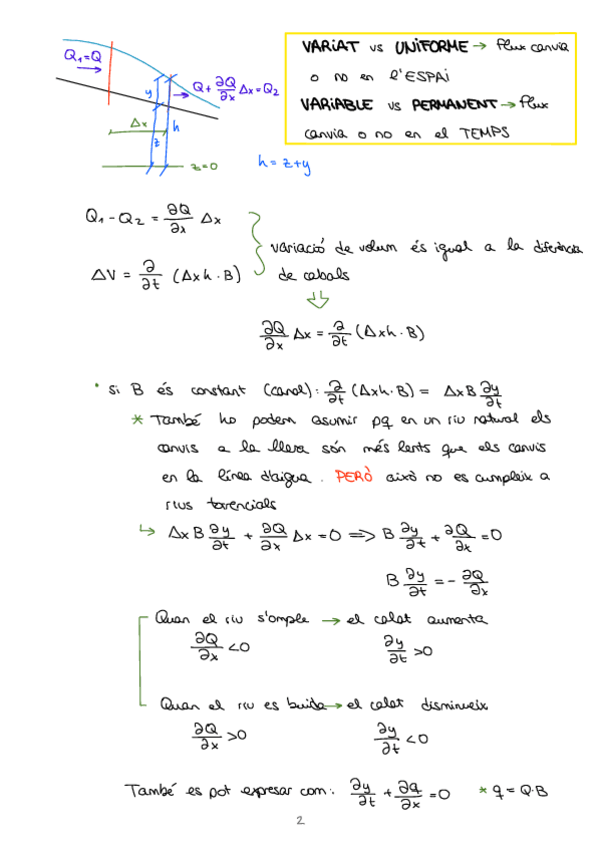 Q₁=Q
Q+ ∂Q/∂x Δx=Q₂
y
Δx
h
z
z=0
h=z+y
VARIAT vs UNIFORME → flux canvia
o no en l'ESPAI
VARIABLE vs PERMANENT → flux
canvia o no en el TEMPS
Q₁-Q₂ = ∂Q/∂x Δx
ΔV = ∂/∂t (Δxh·B)
variació de volum és igual a la diferència
de cabals
∂Q/∂x Δx = ∂/∂t (Δxh·B)
· si B és constant (canal): ∂/∂t (Δxh·B) = ΔxB ∂y/∂t
* També ho podem asumir pq en un riu natural els
canvis a la llera són més lents que els canvis
en la línea d'aigua. PERÒ això no es cumpleix a
rius torrencials
↳ ΔxB ∂y/∂t + ∂Q/∂x Δx = 0 => B ∂y/∂t + ∂Q/∂x = 0
B ∂y/∂t = - ∂Q/∂x
Quan el riu s'omple → el calat aumenta
∂Q/∂x <0 ∂y/∂t >0
Quan el riu es buida → el calat disminueix
∂Q/∂x >0 ∂y/∂t <0
També es pot expresar com: ∂y/∂t + ∂q/∂x = 0 * q = Q·B
2